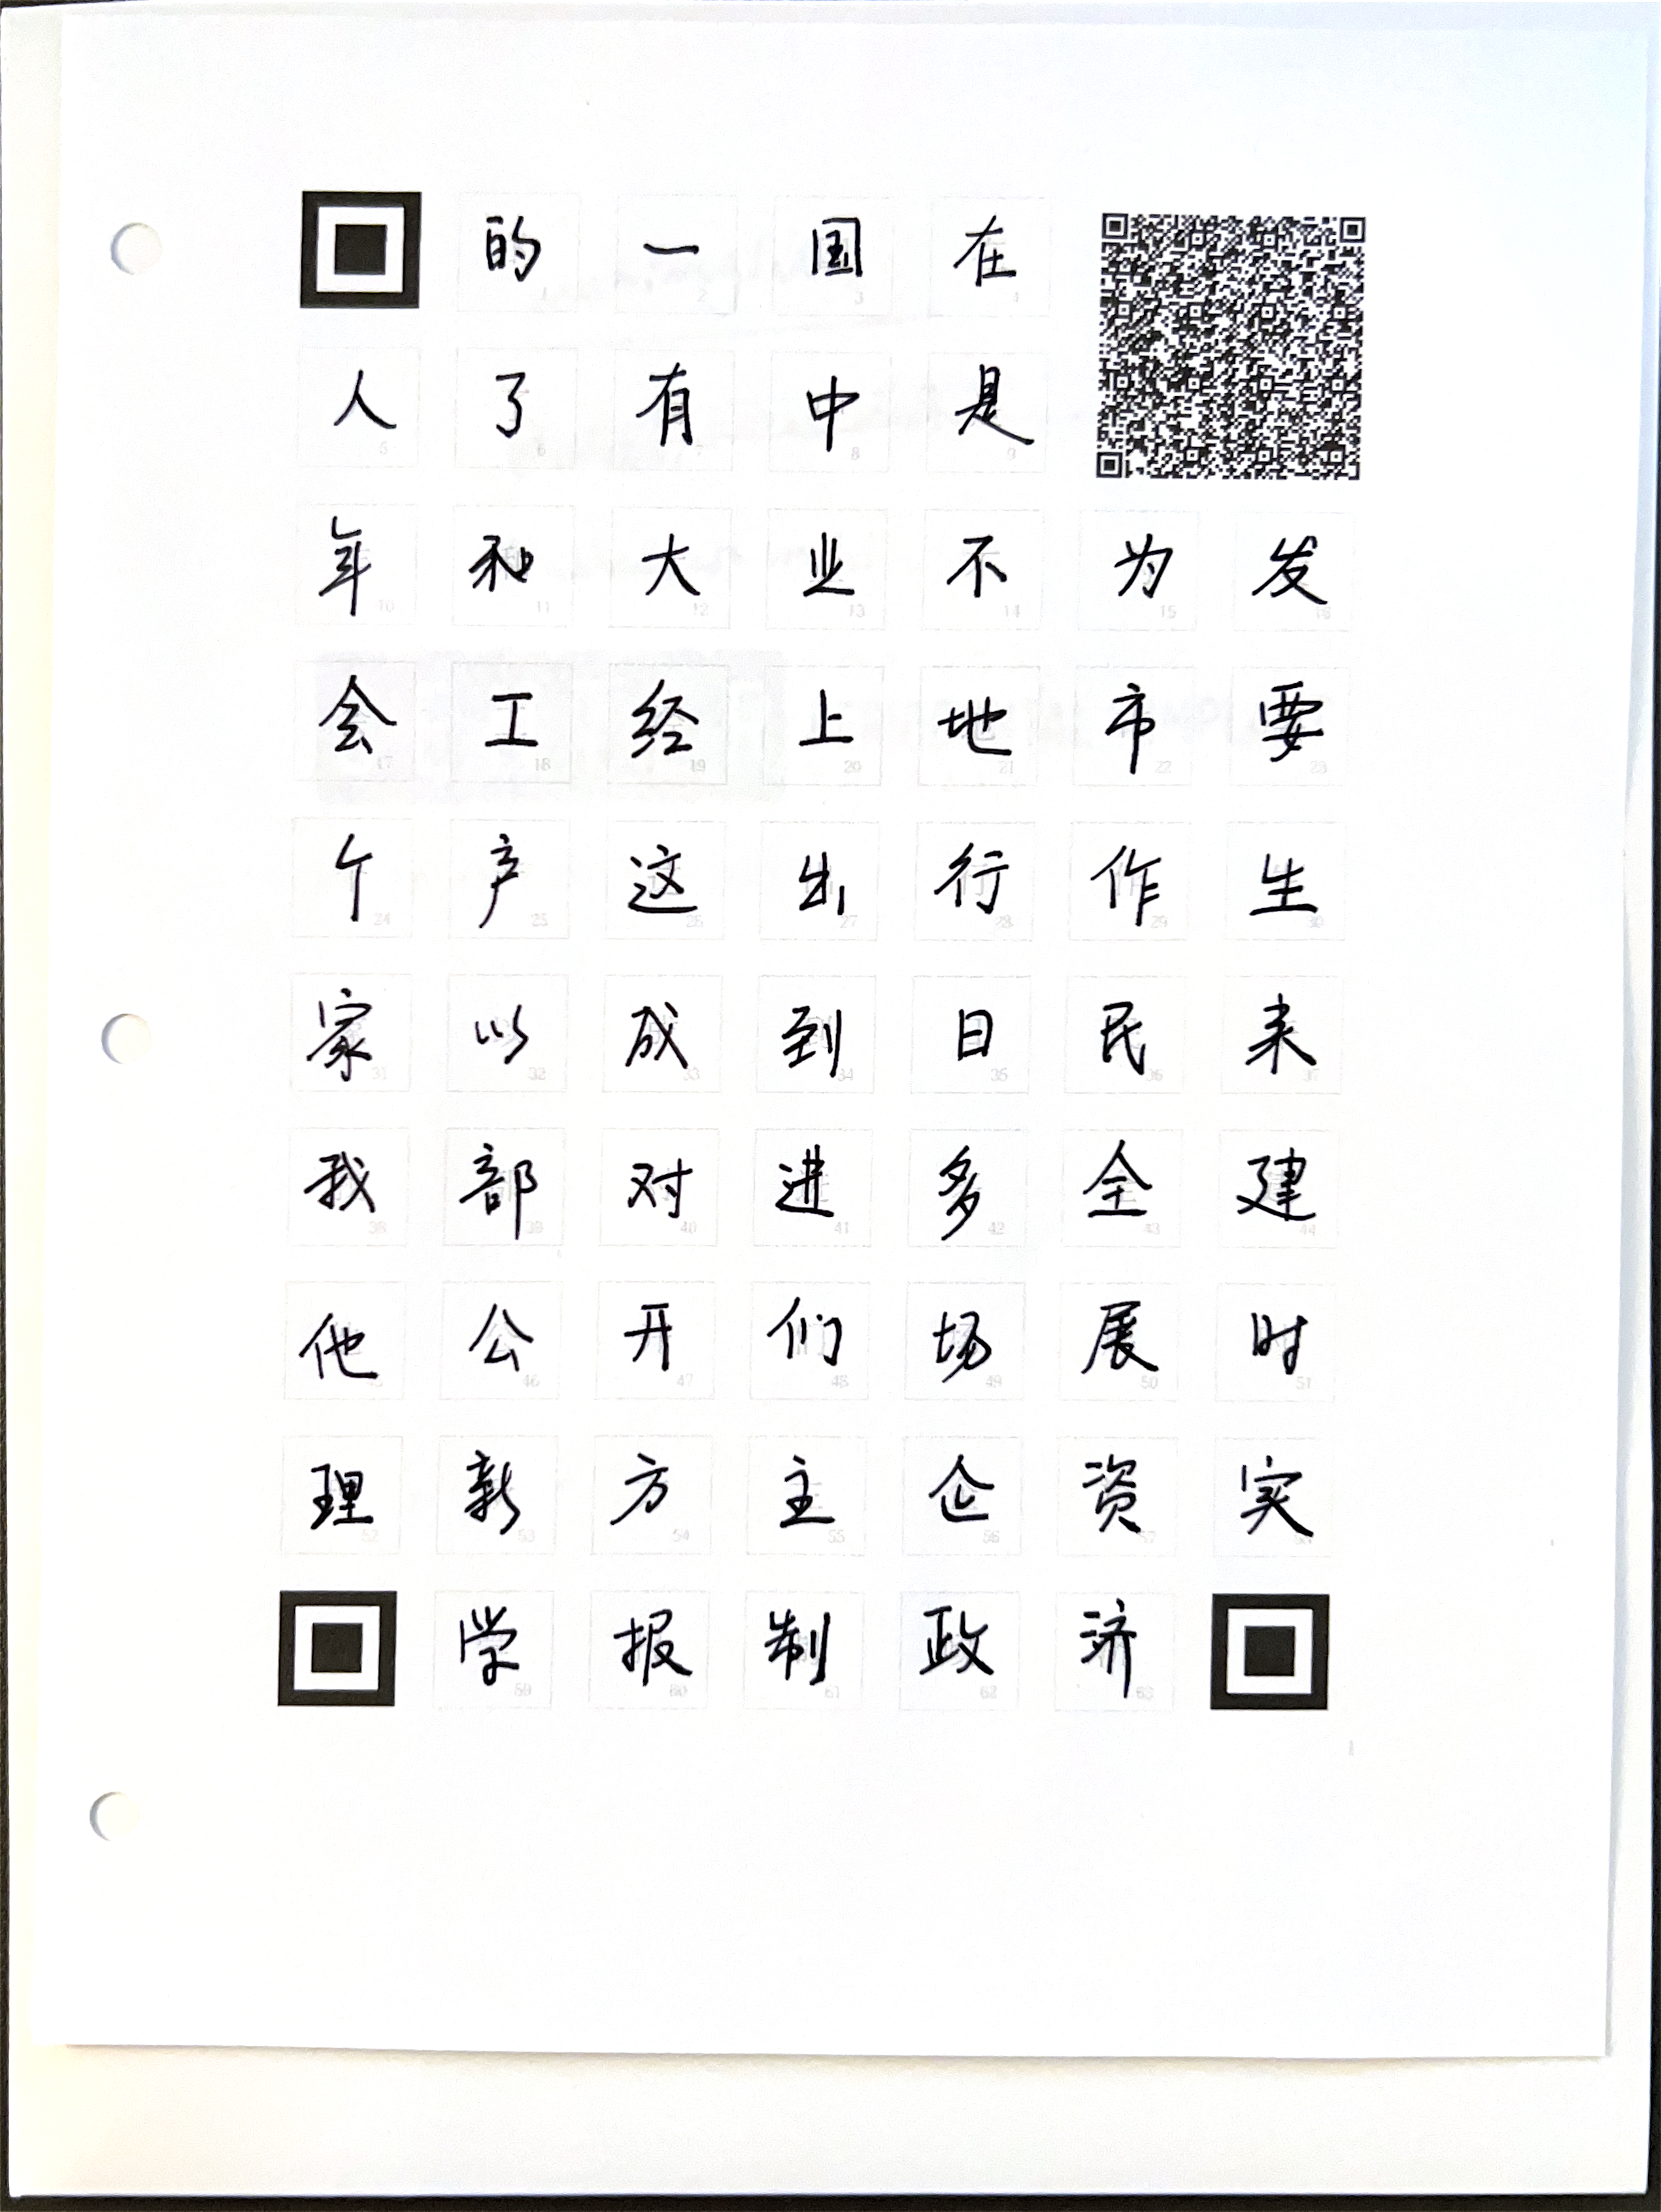 的 一 国 在
人 了 有 中 是
年 和 大 业 不 为 发
会 工 经 上 地 市 要
个 产 这 出 行 作 生
家 以 成 到 日 民 来
我 部 对 进 多 全 建
他 公 开 们 场 展 时
理 新 方 主 企 资 实
学 报 制 政 济
1